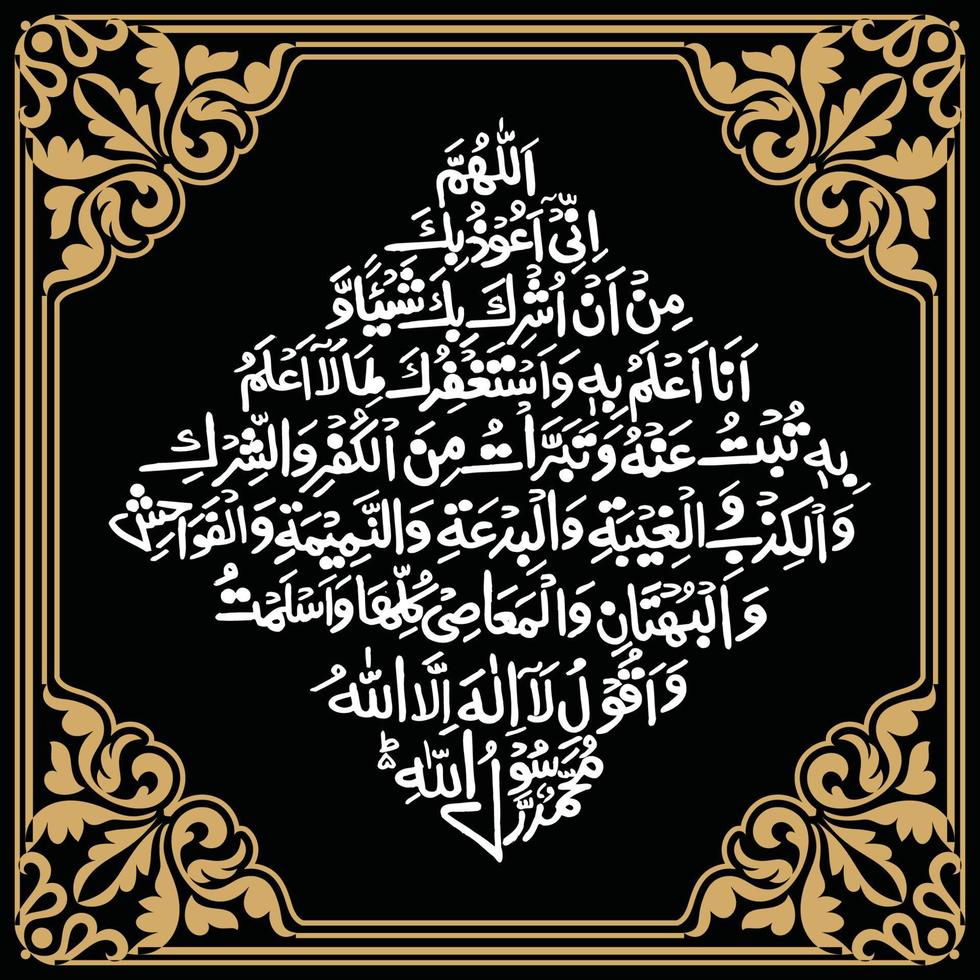 اَللّٰهُمَّ
اِنِّىْٓ اَعُوْذُ بِكَ
مِنْ اَنْ اُشْرِكَ بِكَ شَيْئًا وَّ
اَنَا اَعْلَمُ بِهٖ وَاَسْتَغْفِرُكَ لِمَا لَآ اَعْلَمُ
بِهٖ تُبْتُ عَنْهُ وَتَبَرَّاْتُ مِنَ الْكُفْرِ وَالشِّرْكِ
وَالْكِذْبِ وَالْغِيْبَةِ وَالْبِدْعَةِ وَالنَّمِيْمَةِ وَالْفَوَاحِشِ
وَالْبُهْتَانِ وَالْمَعَاصِىْ كُلِّهَا وَاَسْلَمْتُ
وَاَقُوْلُ لَآ اِلٰهَ اِلَّا اللّٰهُ
مُحَمَّدٌ رَّسُوْلُ اللّٰهِؕ